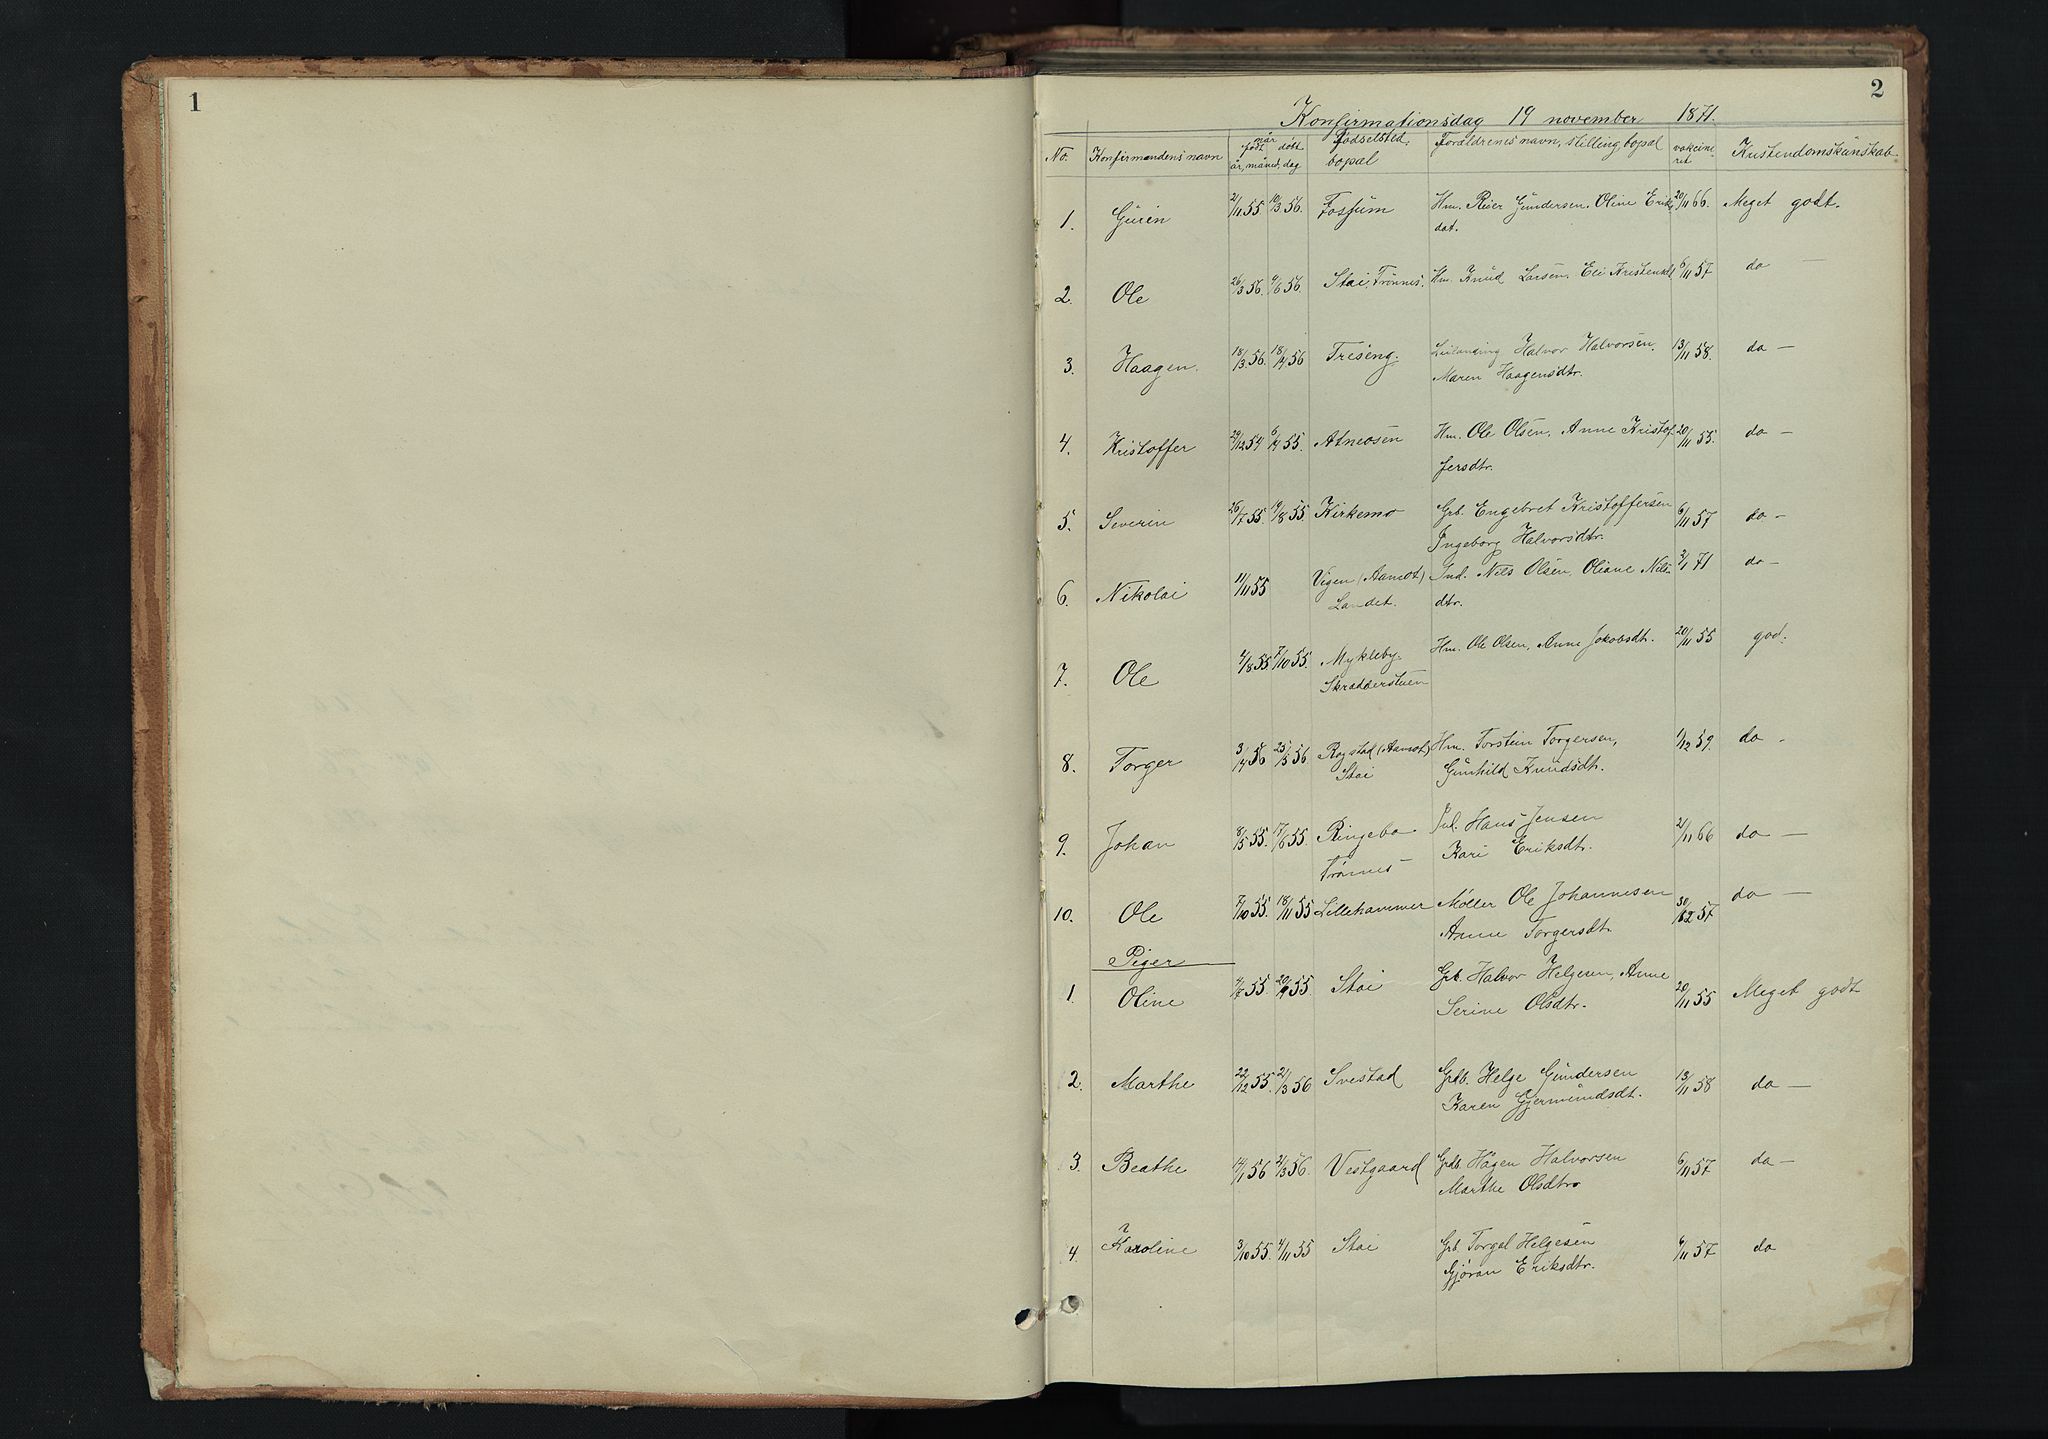 1
2
Konfirmationsdag 19 november 1871.
No. Konfirmandens navn når født døbt år, måned, dag Fødselsted, bopæl Forældrenes navn, stilling, bopæl vakcineret Kristendomskunskab
1. Guren 2/11 55 10/3 56. Fosfum Hm. Reier Gundersen. Oline Eriks 20/11 66. Meget godt.
dat.
2. Ole 26/3 56. 9/6 56. Stai, Trønnes. Hm. Knud Larsen, Eli Kristensdt 6/11 57 do —
3. Haagen. 18/3 56. 18/4 56 Treseng. Leilænding Halvor Halvorsen, 13/11 58. do —
Maren Haagensdtr.
4. Kristoffer 29/12 54 6/4 55. Atneosen Hm. Ole Olsen, Anne Kristof 20/11 55. do —
fersdtr.
5. Severin 26/7 55. 19/8 55 Kirkemo Grb. Engebret Kristoffersen 6/11 57 do —
Ingeborg Halvorsdtr.
6. Nikolai 11/11 55 Vigen (Aamot) Ind. Nils Olsen, Oliane Nils- 2/1 71 do —
Landet. dtr.
7. Ole 4/8 55 7/10 55. Mykleby. Hm. Ole Olsen, Anne Jakobsdt. 20/11 55 god.
Skrædderstuen
8. Torger 3/4 56 25/5 56 Rogstad (Aamot) Hm. Torstein Torgersen, 1/12 59. do -
Stai Gunhild Knudsdt.
9. Johan 8/5 55. 17/6 55. Ringebo Ind. Hans Jensen 21/11 66 do —
Trønnes Kari Eriksdtr.
10. Ole 7/10 55. 18/11 55 Lillehammer Møller Ole Johannesen 30/12 57 do —
Anne Torgersdt.
Piger
1. Oline 4/7 55. 20/9 55. Stai Grb. Halvor Helgesen, Anne 20/11 55 Meget godt
Serine Olsdtr.
2. Marthe 22/12 55. 21/3 56 Svestad Grdb. Helge Gundersen 13/11 58 do —
Karen Gjermundsdt.
3. Beathe 14/1 56 2/3 56. Vestgaard Grdb. Hågen Halvorsen 6/11 57 do —
Marthe Olsdtr.
4. Karoline 3/10 55. 4/11 55 Stai Grb. Torgal Helgesen 6/11 57 do
Gjøran Eriksdtr.